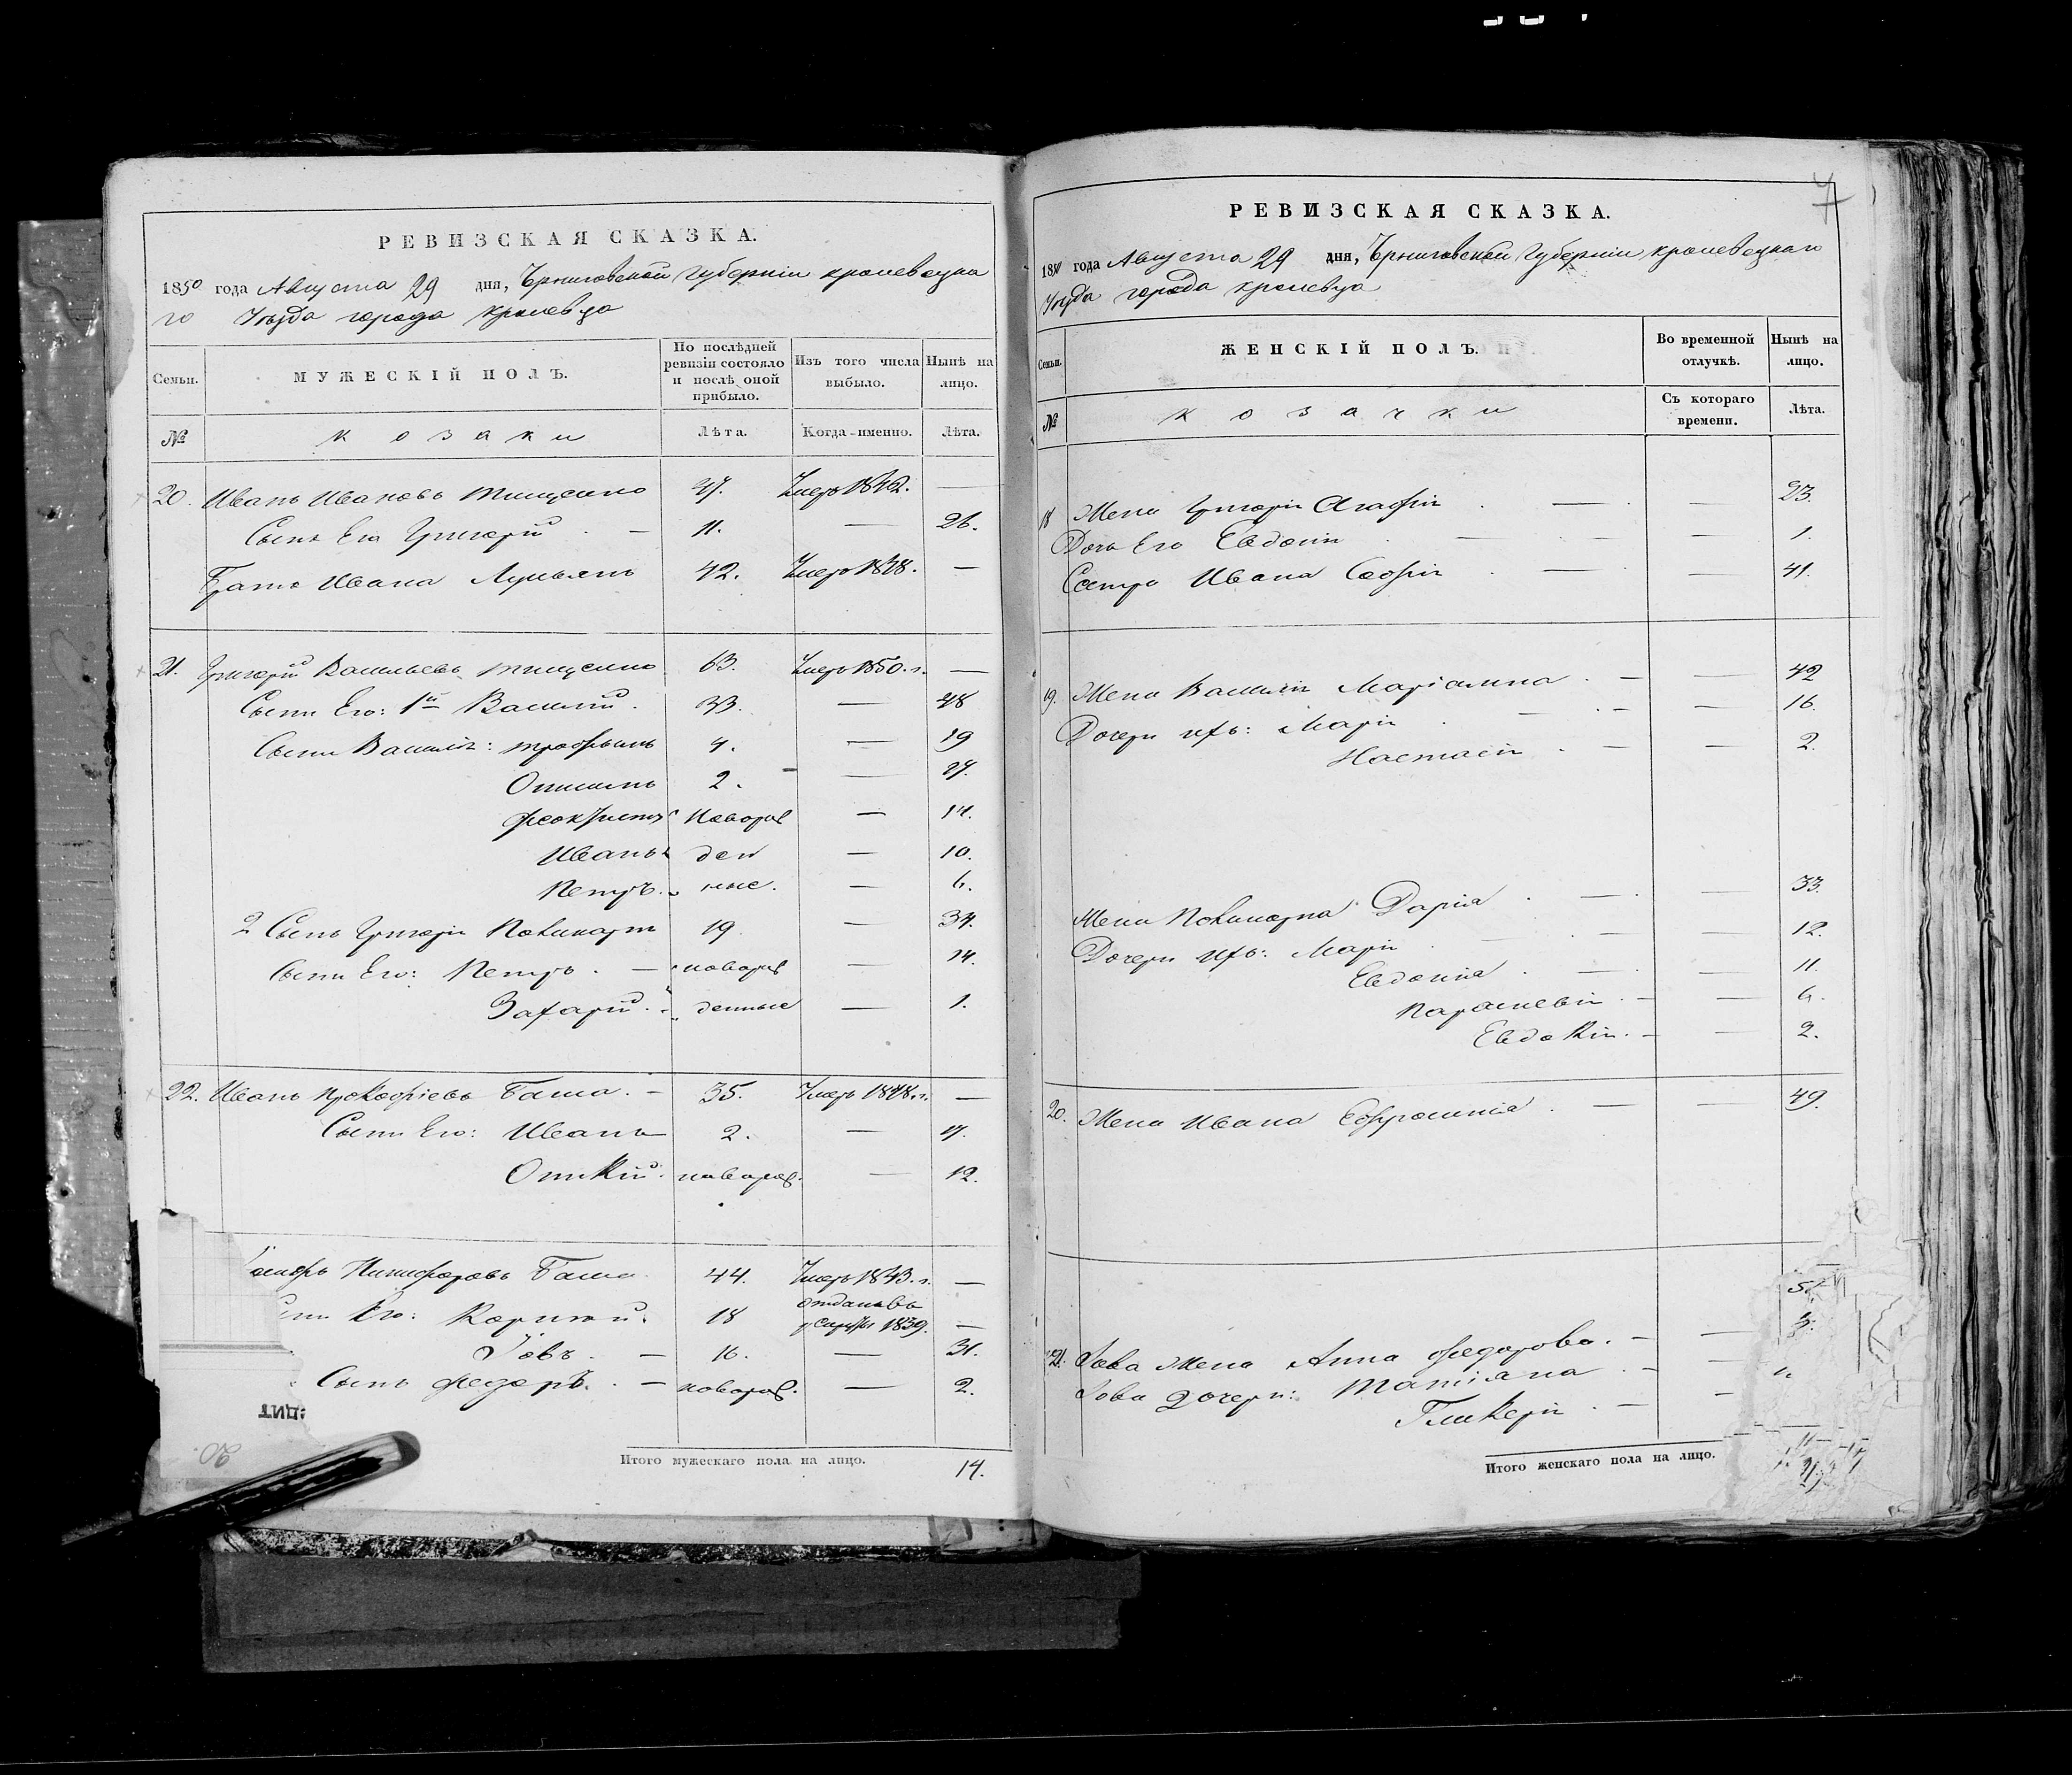 РЕВИЗСКАЯ СКАЗКА.
1850 года Августа 29 дня, Черниговской Губерніи Кролевецка
го Уезда города Кролевца
Семьи.
МУЖЕСКІЙ ПОЛЪ.
По послѣдней ревизіи состояло и послѣ оной прибыло.
Изъ того числа выбыло.
Нынѣ на лицо.
№
Козаки
Лѣта.
Когда именно.
Лѣта.
20. Иванъ Ивановъ Тищенко 47. Умеръ 1842. —
Сынъ Его Григорій — 11. — 26.
Братъ Ивана Лукьянъ 42. Умеръ 1848. —
21. Григорій Васильевъ Тищенко 63. Умеръ 1850. г. —
Сыни Его: 1й Василій. 33. — 48
Сыни Василія: Трофымъ 4. — 19
2. —
Феокристъ Новорож — 14.
Иванъ ден — 10.
Петръ. ные. — 6.
2 Сынъ Григорія Поликарпъ 19 — 34.
Сыни Его: Петръ. — новорож — 14.
Захарій. денные — 1.
22. Иванъ Прокофіевъ Баша. — 35. Умеръ 1848. г. —
Сыни Его: Иванъ 2. — 17.
новорож. — 12.
Никифоровъ Баша. 44. Умеръ 1843. г. —
Его: Корній. 18 отданъ въ рекруты 1839. —
Іовъ. — 16. — 31.
Сынъ Федоръ. — новорож. — 2.
20.
Итого мужескаго пола на лицо. 14.
РЕВИЗСКАЯ СКАЗКА.
1850 года Августа 29 дня, Черниговской Губерніи Кролевецкаго
Уезда города Кролевца
Семьи.
ЖЕНСКІЙ ПОЛЪ.
Во временной отлучкѣ.
Нынѣ на лицо.
№
Козачки
Съ котораго времени.
Лѣта.
18 Жена Григорія Агафія — — 23.
Дочь Его Евдокія — — 1.
Сестра Ивана Софія — — 41.
19. Жена Василія Маріамна — — 42
Дочери ихъ: Марія — — 16.
Настасія — — 2.
Жена Поликарпа Дарія — — 33.
Дочери ихъ: Марія — — 12.
Евдокія — — 11.
Параскевія — — 6.
Евдокія. — — 2.
20. Жена Ивана Ефросинія — — 49.
21. Іова Жена Анна Федорова. — —
Іова Дочери: Татіана — —
Гликерія — —
Итого женскаго пола на лицо.